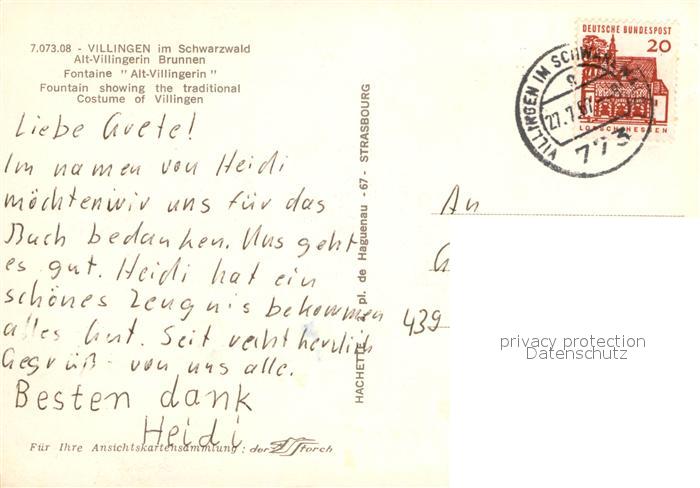 7.073.08 - VILLINGEN im Schwarzwald
Alt-Villingerin Brunnen
Fontaine " Alt-Villingerin "
Fountain showing the traditional
Costume of Villingen
DEUTSCHE BUNDESPOST
20
LORSCH/HESSEN
VILLINGEN IM SCHWARZWALD
27.7.67
773
Liebe Grete!
Im namen von Heidi
möchten wir uns für das
Buch bedanken. Uns geht
es gut. Heidi hat ein
schönes Zeugnis bekommen
alles Gut. Seit recht herzlich
Gegrüß von uns alle.
Besten dank
Heidi
An
G
439
HACHETTE 2 pl. de Haguenau -67- STRASBOURG
privacy protection
Datenschutz
Für Ihre Ansichtskartensammlung : der Storch